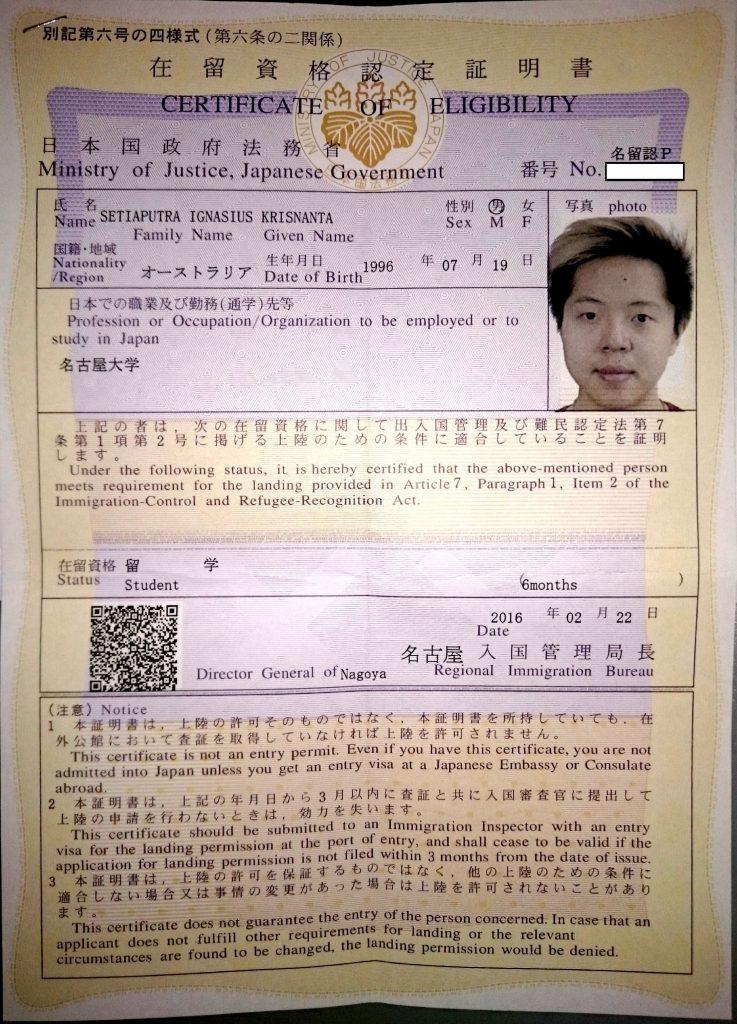 別記第六号の四様式(第六条の二関係)
在留資格認定証明書
CERTIFICATE OF ELIGIBILITY
MINISTRY OF JUSTICE JAPAN
日本国政府法務省
Ministry of Justice, Japanese Government
名留認P
番号 No.
氏名
Name SETIAPUTRA IGNASIUS KRISNANTA
Family Name Given Name
性別 男 女
Sex M F
写真 photo
国籍・地域
Nationality
/Region オーストラリア
生年月日
Date of Birth 1996 年 07 月 19 日
日本での職業及び勤務(通学)先等
Profession or Occupation/Organization to be employed or to
study in Japan
名古屋大学
上記の者は、次の在留資格に関して出入国管理及び難民認定法第7
条第1項第2号に掲げる上陸のための条件に適合していることを証明
します。
Under the following status, it is hereby certified that the above-mentioned person
meets requirement for the landing provided in Article 7, Paragraph 1, Item 2 of the
Immigration-Control and Refugee-Recognition Act.
在留資格 留 学
Status Student (6months )
2016 年 02 月 22 日
Date
名古屋 入国管理局長
Director General of Nagoya Regional Immigration Bureau
(注意) Notice
1 本証明書は、上陸の許可そのものではなく、本証明書を所持していても、在
外公館において査証を取得していなければ上陸を許可されません。
This certificate is not an entry permit. Even if you have this certificate, you are not
admitted into Japan unless you get an entry visa at a Japanese Embassy or Consulate
abroad.
2 本証明書は、上記の年月日から3月以内に査証と共に入国審査官に提出して
上陸の申請を行わないときは、効力を失います。
This certificate should be submitted to an Immigration Inspector with an entry
visa for the landing permission at the port of entry, and shall cease to be valid if the
application for landing permission is not filed within 3 months from the date of issue.
3 本証明書は、上陸の許可を保証するものではなく、他の上陸のための条件に
適合しない場合又は事情の変更があった場合は上陸を許可されないことがあり
ます。
This certificate does not guarantee the entry of the person concerned. In case that an
applicant does not fulfill other requirements for landing or the relevant
circumstances are found to be changed, the landing permission would be denied.